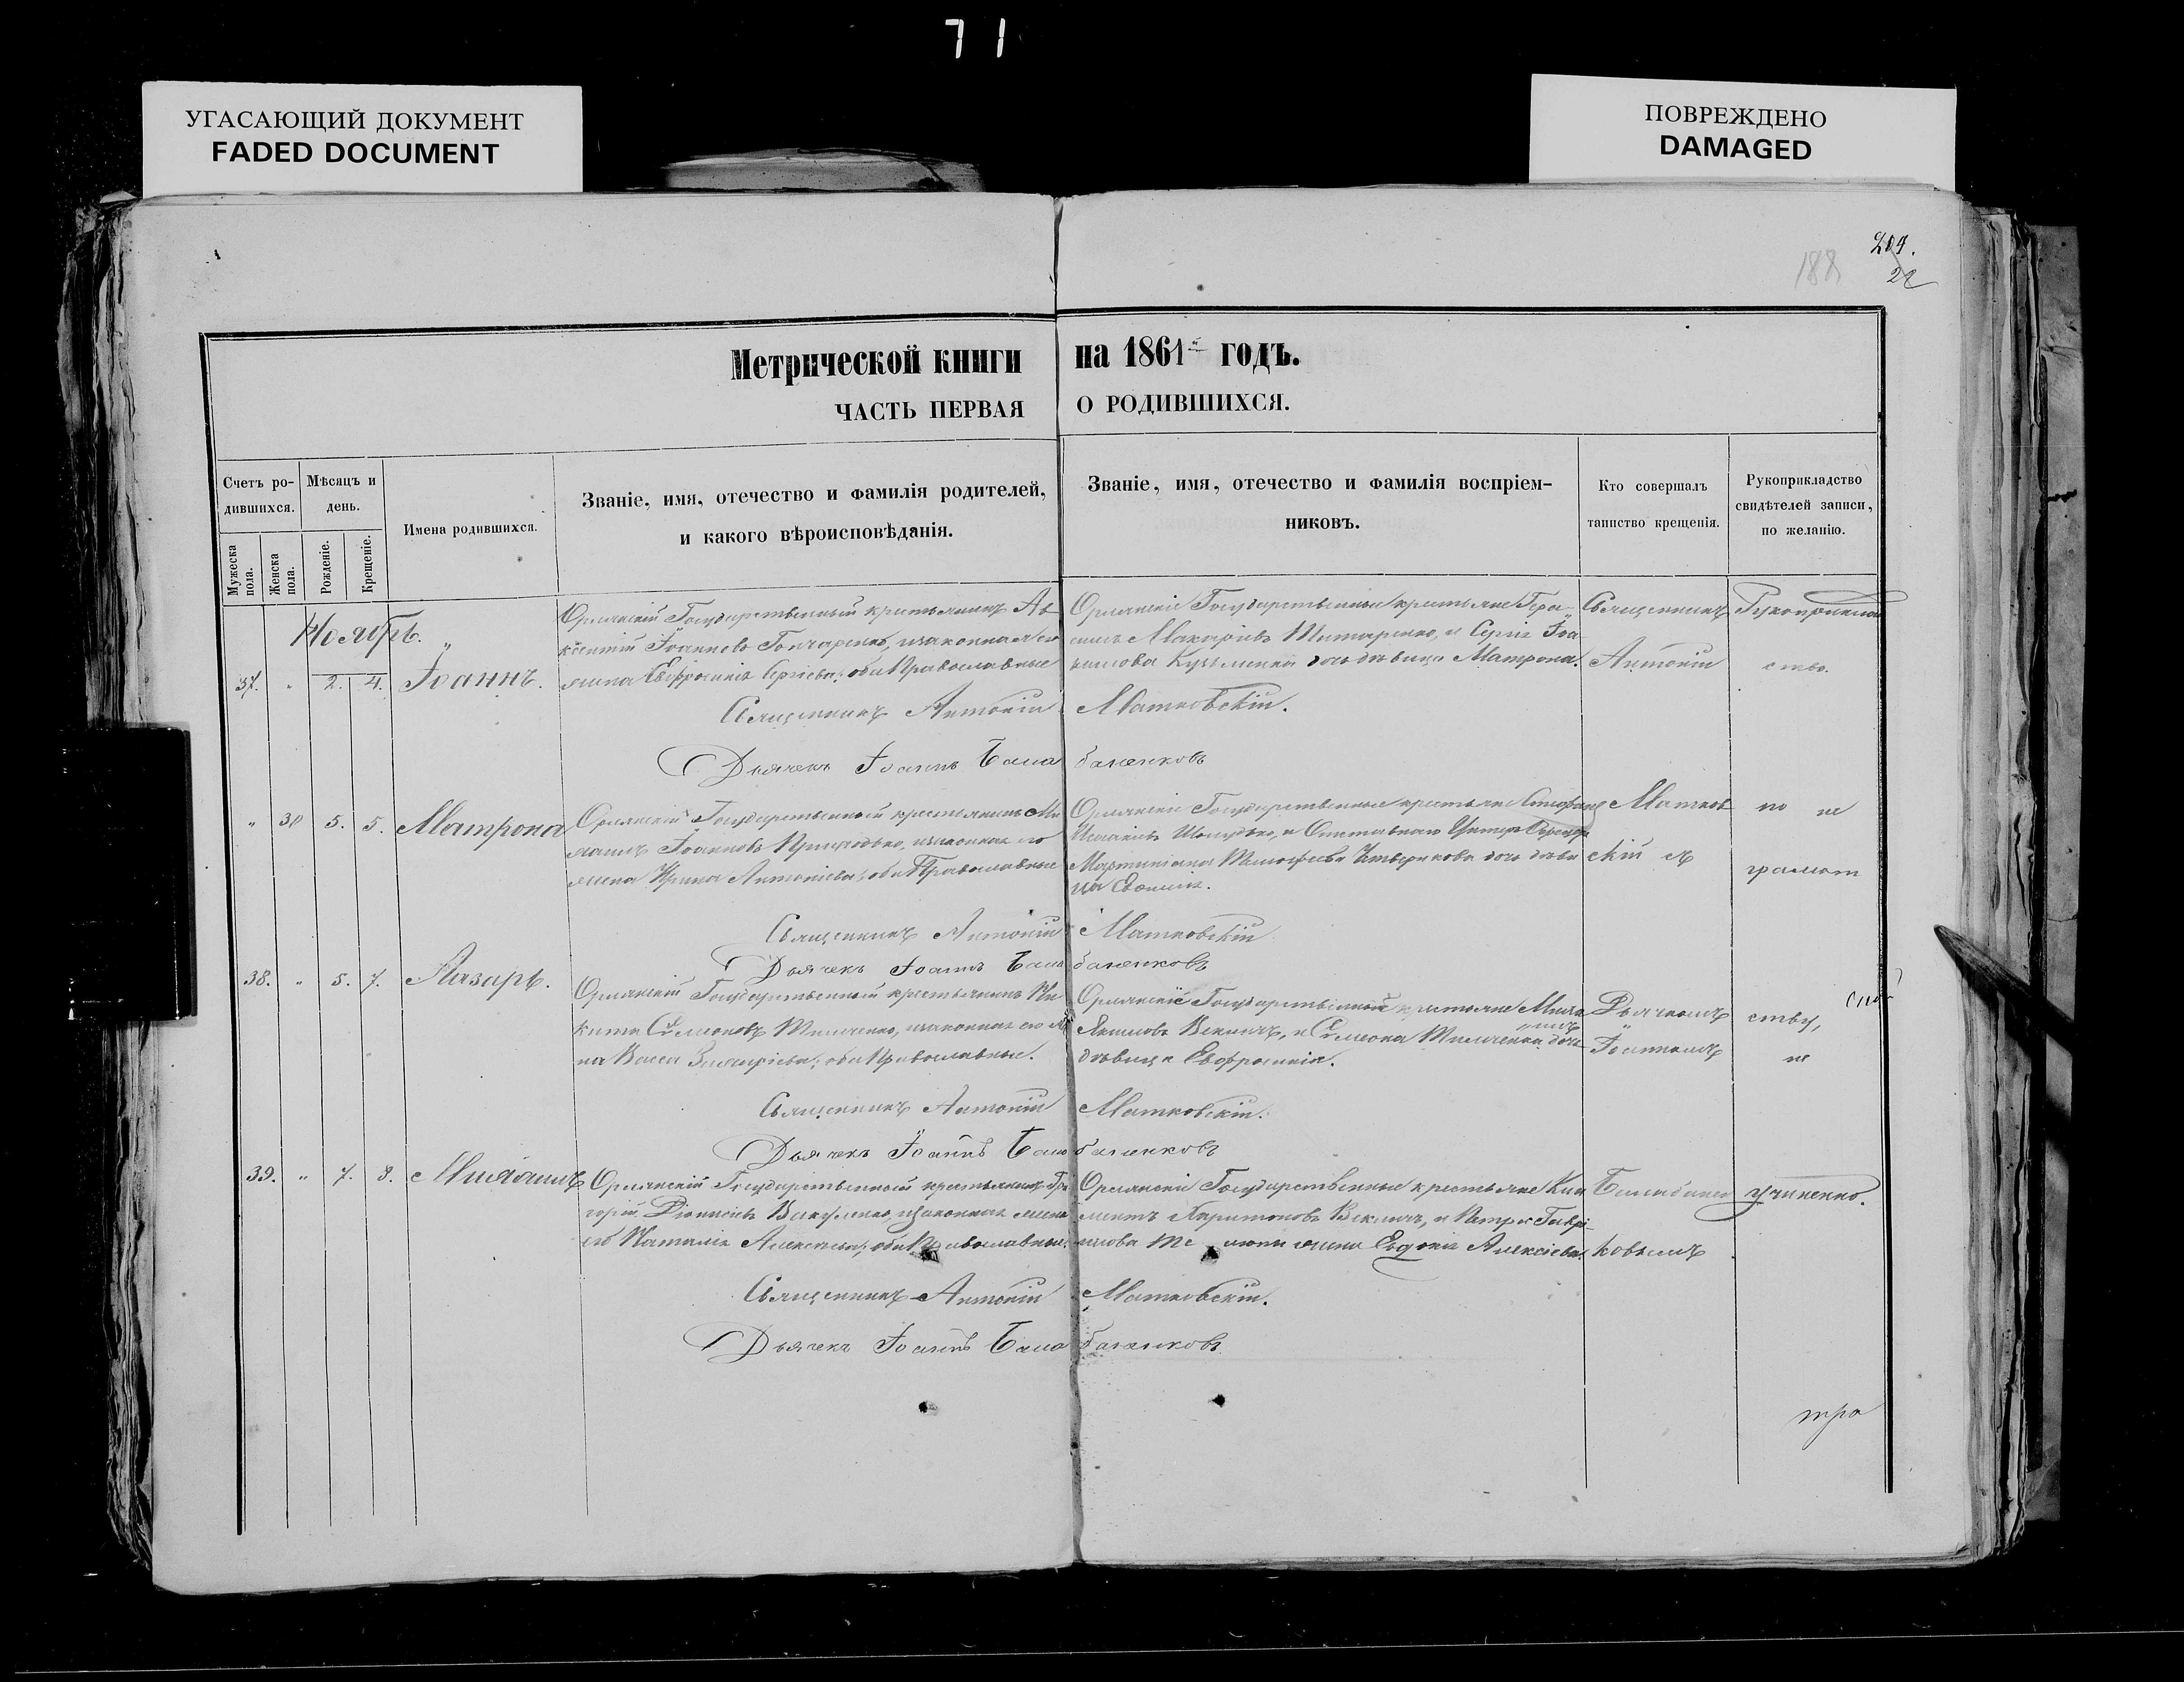 71
УГАСАЮЩИЙ ДОКУМЕНТ
FADED DOCUMENT
ПОВРЕЖДЕНО
DAMAGED
188
22
Метрической книги на 1861 годъ.
ЧАСТЬ ПЕРВАЯ О РОДИВШИХСЯ.
Счетъ ро-
дившихся.
Мужеска
пола.
Женска
пола.
Мѣсяцъ и
день.
Рожденіе.
Крещеніе.
Имена родившихся.
Званіе, имя, отечество и фамилія родителей,
и какого вѣроисповѣданія.
Званіе, имя, отечество и фамилія воспріем-
никовъ.
Кто совершалъ
таинство крещенія.
Рукоприкладство
свидѣтелей записи,
по желанію.
Ноябрь.
37. " 2. 4. Іоаннъ.
Орлянскій Государственный крестьянинъ Ав-
ксентій Іоанновъ Гончаренко, и законная его
жена Евфросинія Сергіева; оба Православные
Орлянскіе Государственные крестьяне Гера-
симъ Макаріевъ Титаренко, и Сергія Іоа-
дочь дѣвица Матрона.
Священникъ
Антоній
Рукоприклад
ство.
Священникъ Антоній Матковскій.
Дьячекъ Іоаннъ Балабаненковъ
" 30 5. 5. Матрона
Орлянскій Государственный крестьянинъ
Іоанновъ и законная его
жена Ирина Антоніева; оба Православные
Орлянскіе Государственные крестьяне Стефанъ
и Отставнаго Унтеръ
Мартиніана Тимофеева Четверикова дочь дѣви
ца Евфимія.
Матков
скій съ
по не
грамот
Священникъ Антоній Матковскій
Дьячекъ Іоаннъ Балабаненковъ
38. " 5. 7. Лазарь.
Орлянскій Государственный крестьянинъ Ни
кита Сѵмеоновъ и законная его же
на Васса оба Православные.
Орлянскіе Государственные крестьяне
Якимовъ Векличъ, и Сѵмеона дочь
дѣвица Евфросинія.
Дьячкомъ
Іоанномъ
ству,
не
Священникъ Антоній Матковскій.
Дьячекъ Іоаннъ Балабаненковъ
39. " 7. 8. Михаилъ
Орлянскій Государственный крестьянинъ Гри
горій Діонисіевъ Вакуленко, и законная жена
его Наталія Алексѣева; оба Православные.
Орлянскіе Государственные крестьяне Кли
ментъ Харитоновъ Векличъ, и Петра Гаврі-
илова жена Евдокія Алексіева.
Балабанен
ковымъ
учиненно.
Священникъ Антоній Матковскій.
Дьячекъ Іоаннъ Балабаненковъ
тра